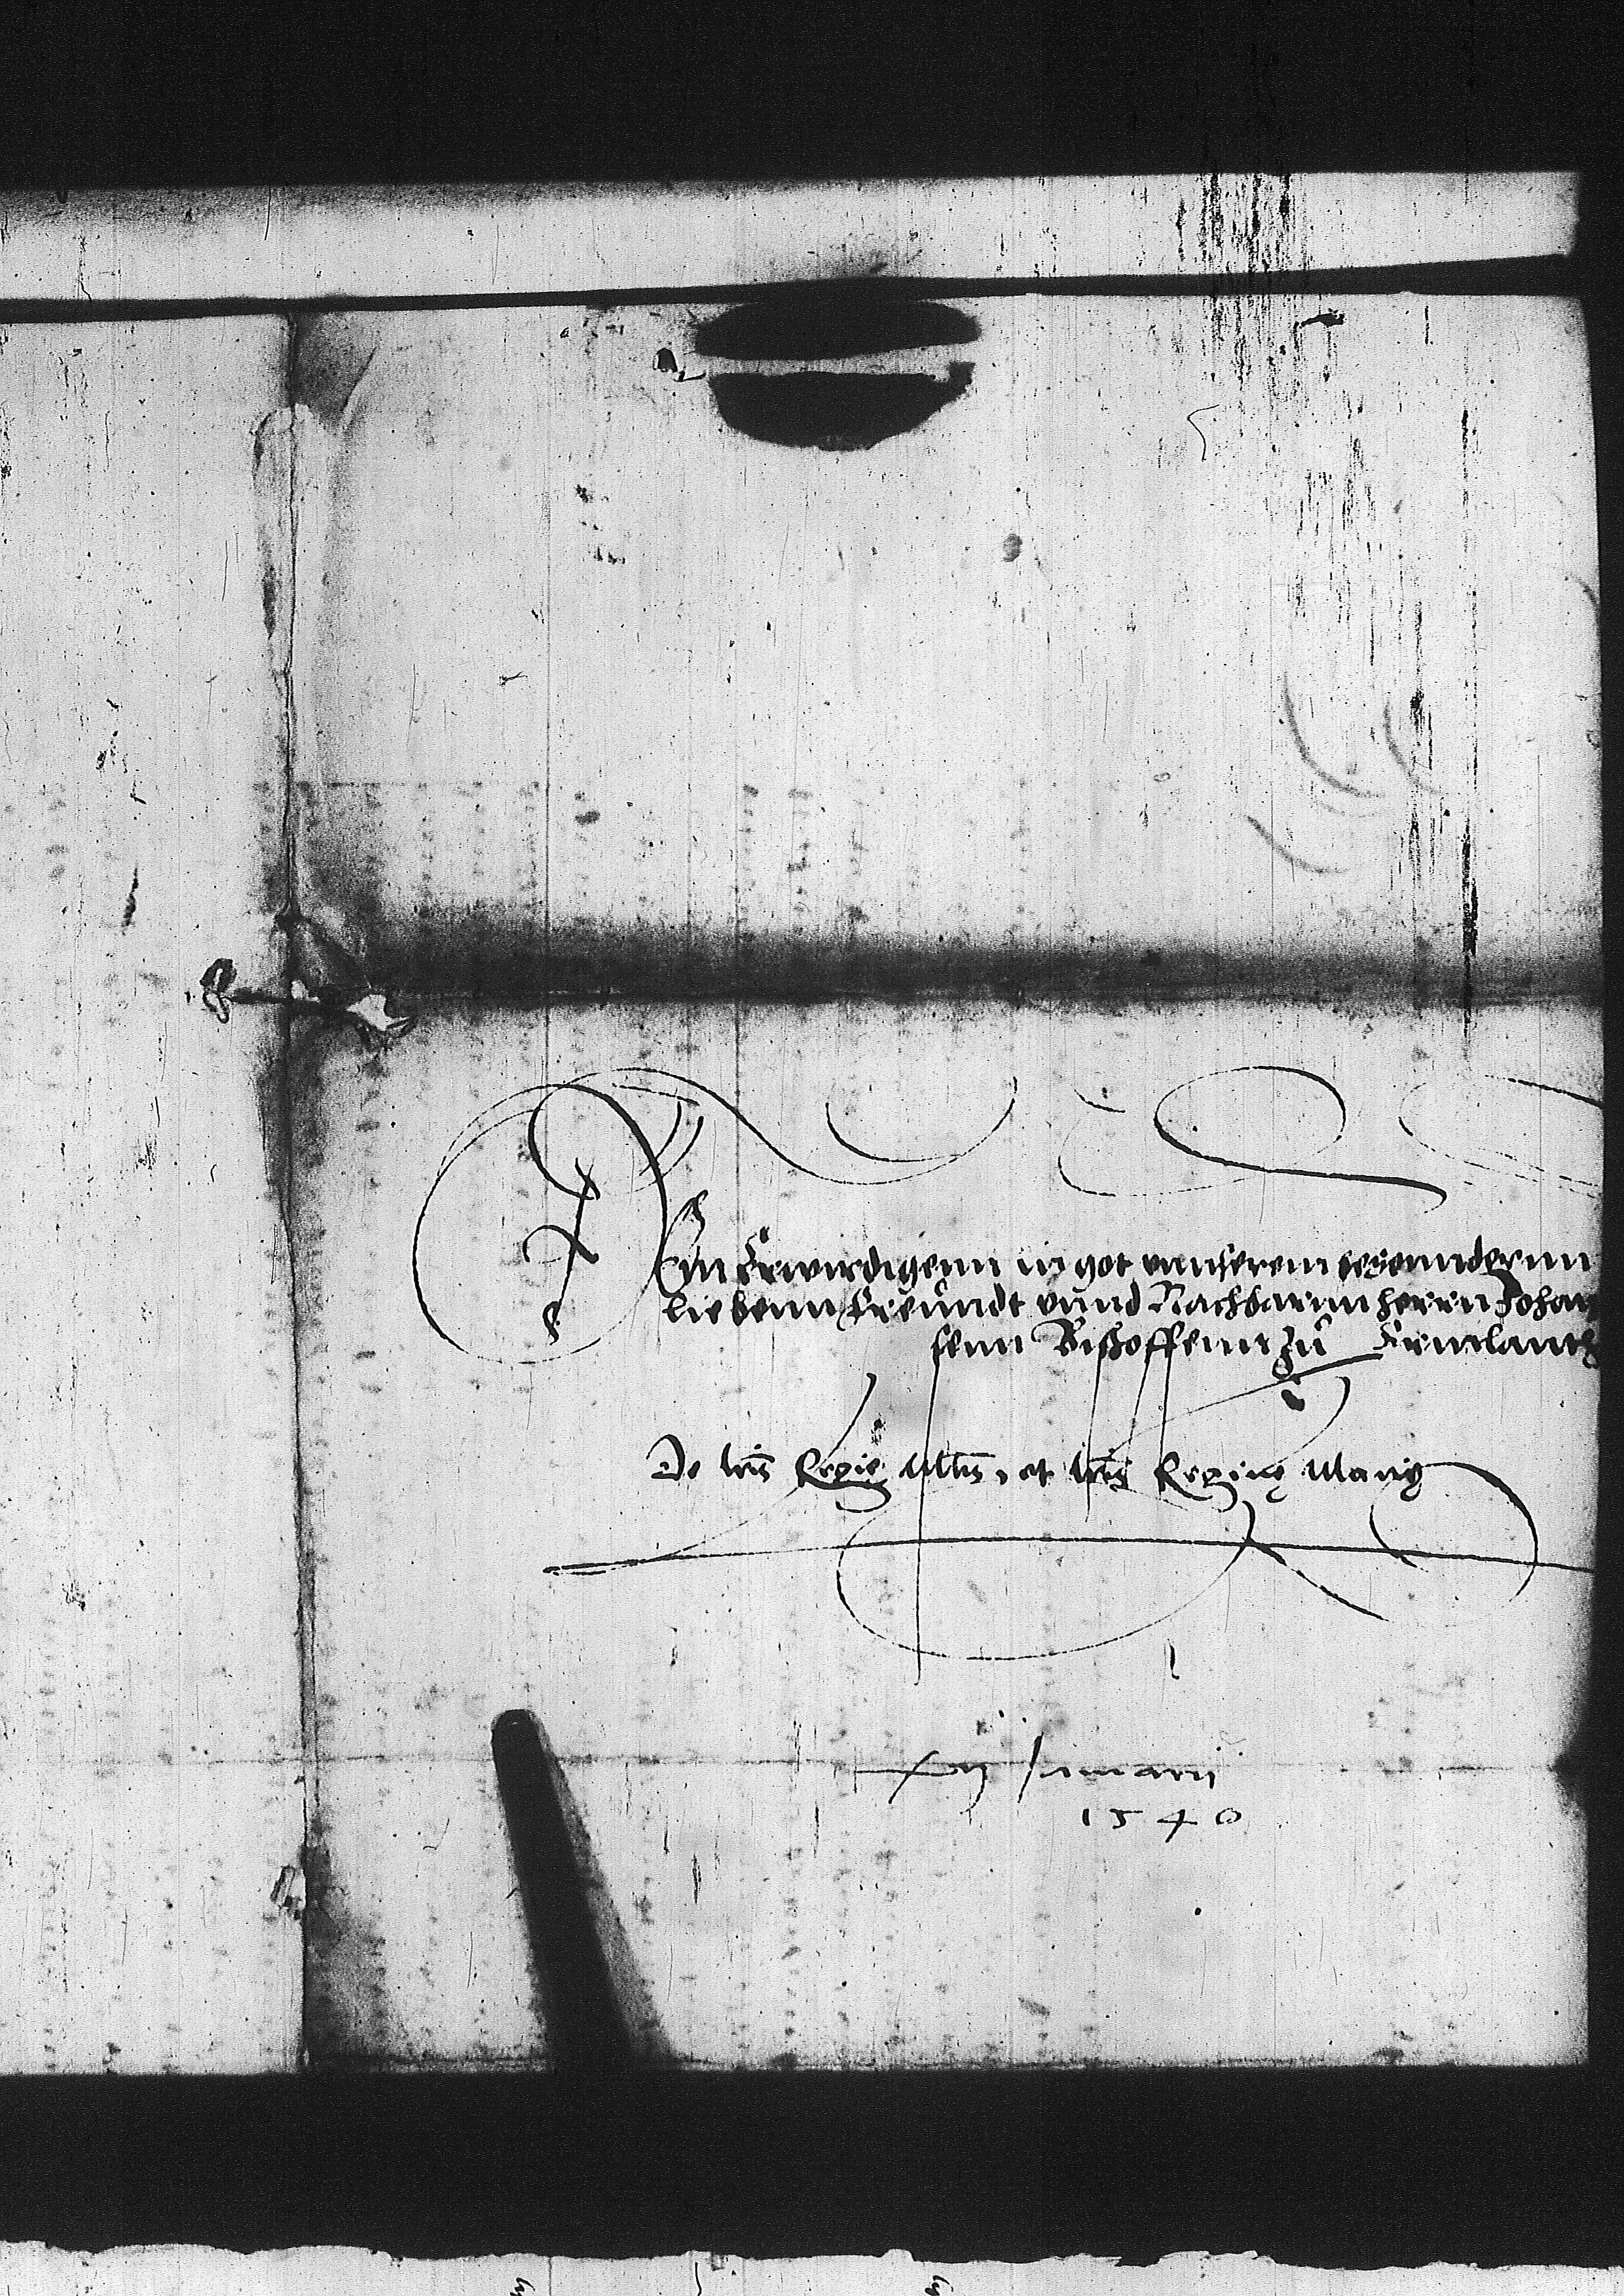 Dem Erwirdigenn in got unnserem besonndernn
liebenn Freundt unnd Nachbarnn herrn Johan
senn Bischoffenn zu Ermlanth
De lris Regie Mtis, et lris Regine Marie
xij Januarii
1540